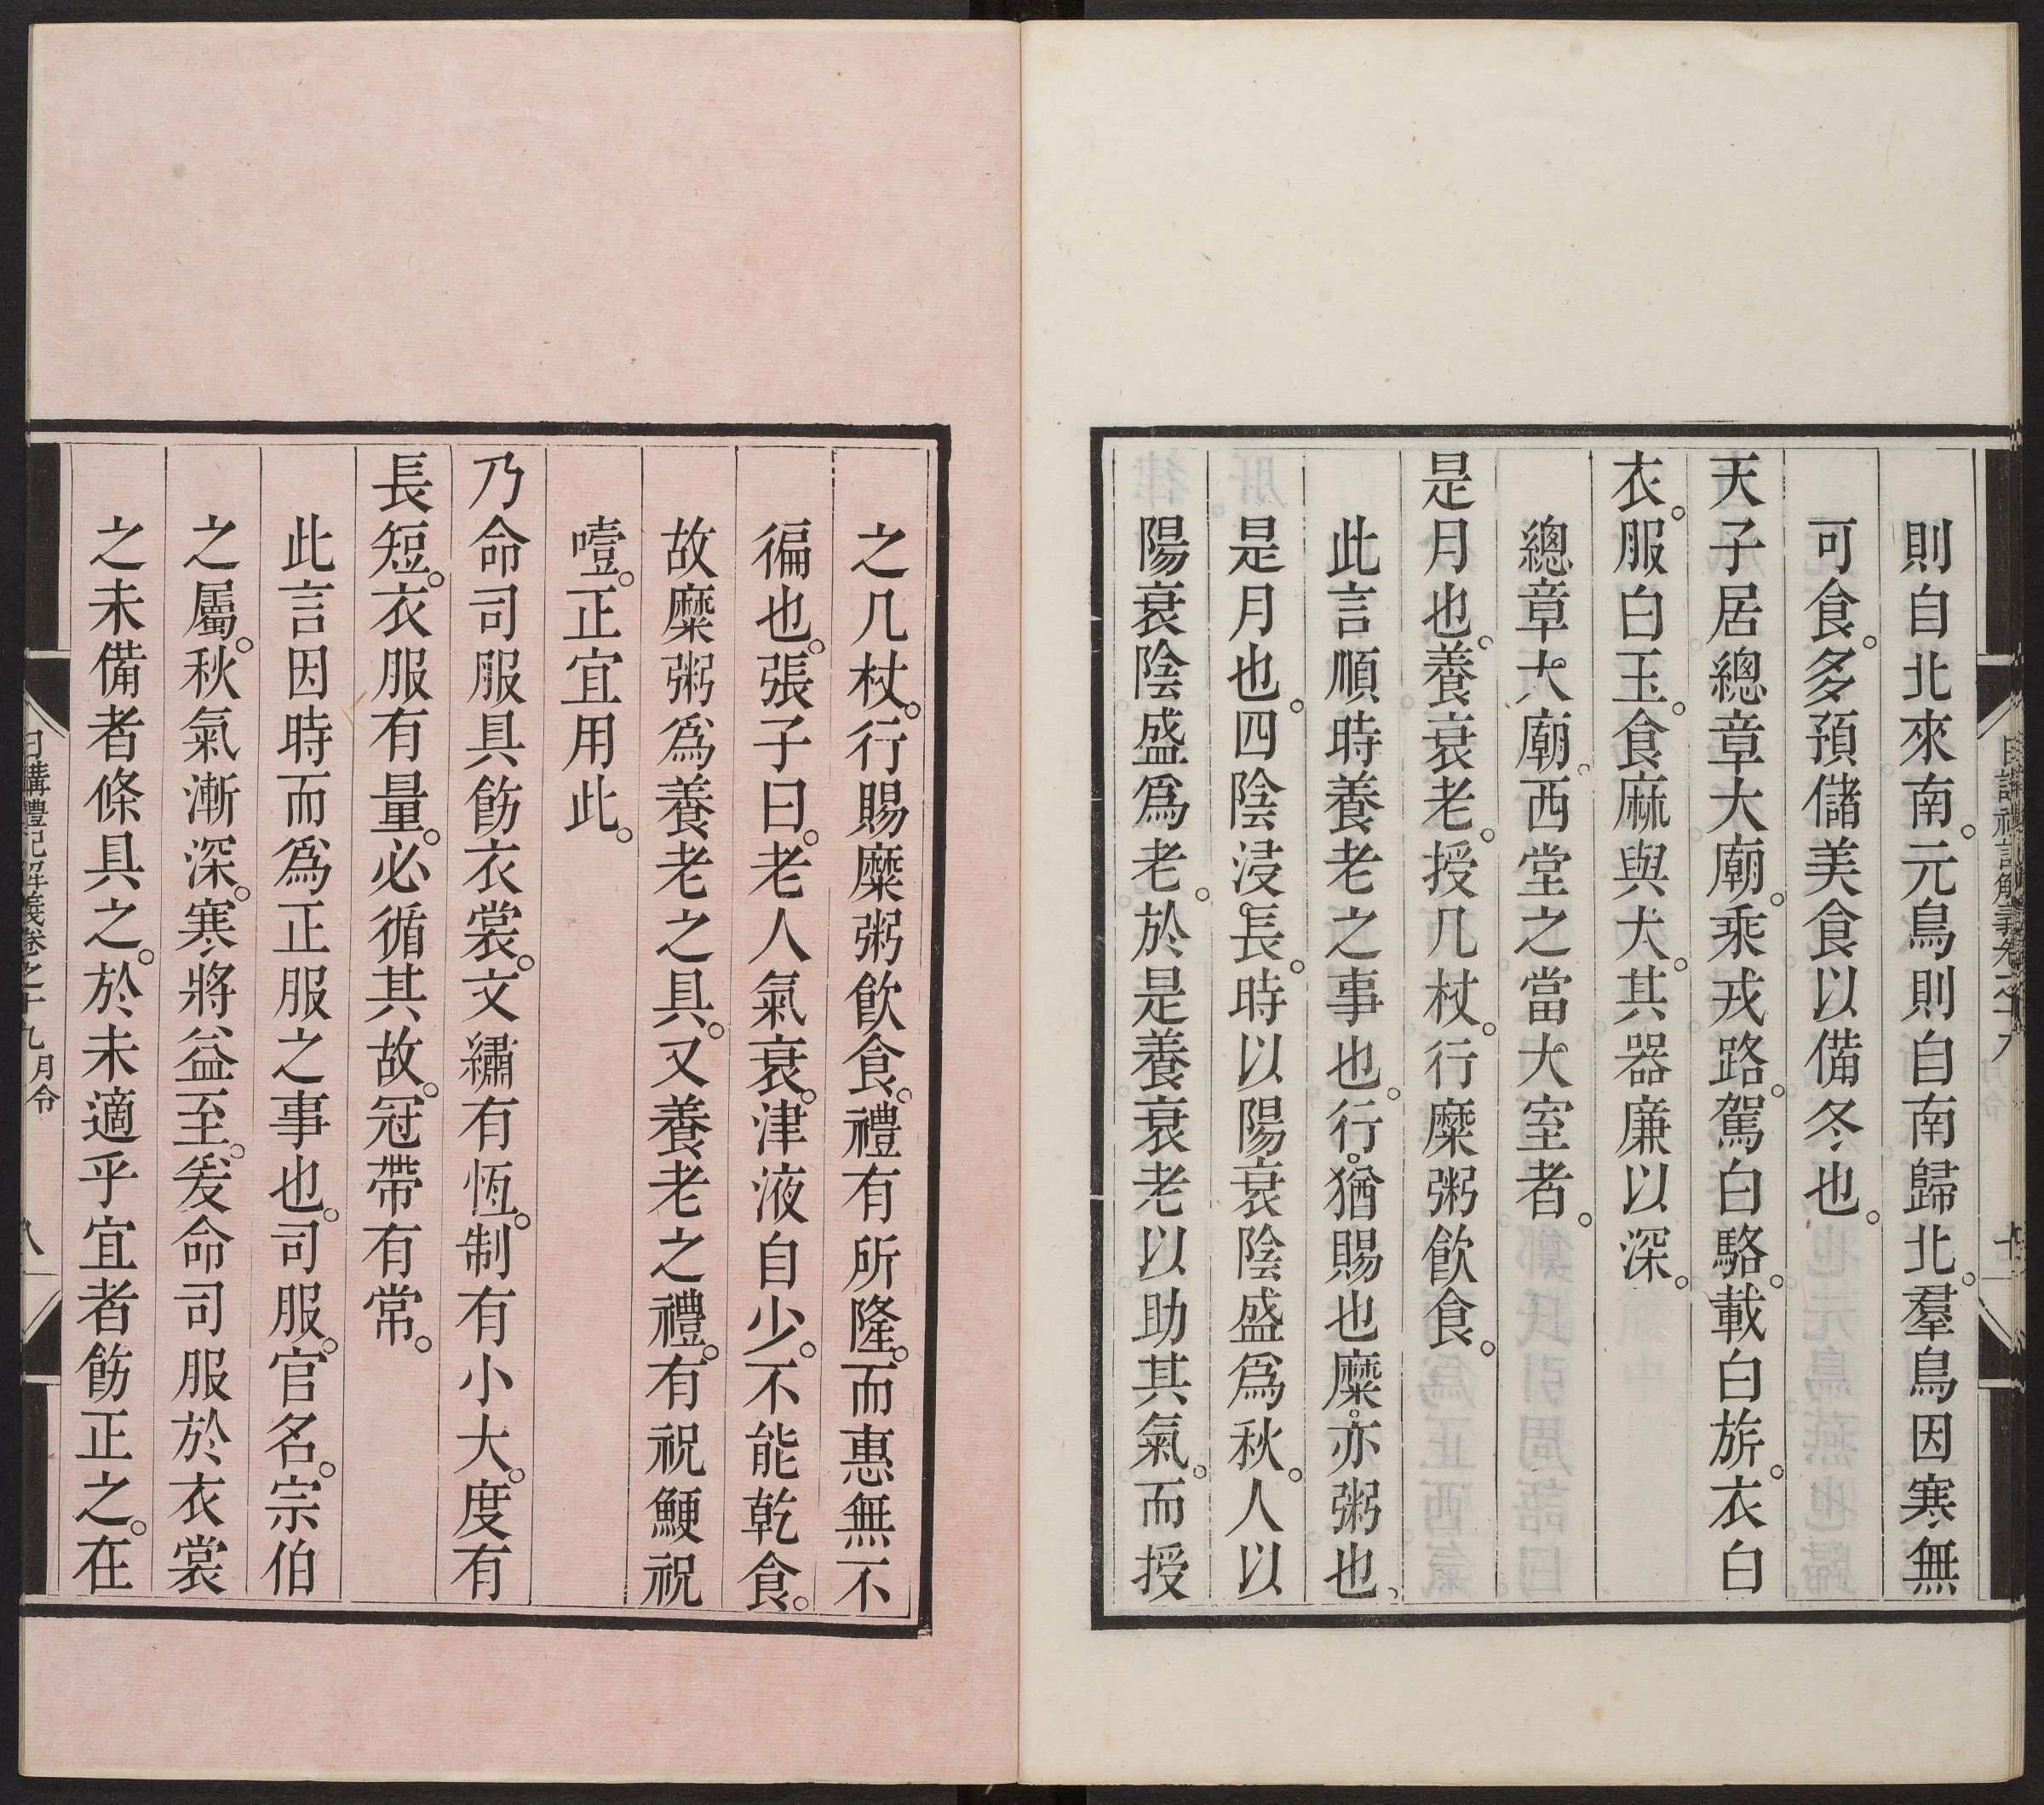 則自北來南。元鳥則自南歸北。羣鳥因寒無
可食。多預儲美食以備冬也。
天子居總章大廟。乘戎路。駕白駱。載白旂。衣白
衣。服白玉。食麻與犬。其器廉以深。
總章大廟。西堂之當大室者。
是月也。養衰老。授几杖。行糜粥飲食。
此言順時養老之事也。行。猶賜也。糜。亦粥也。
是月也。四陰浸長。時以陽衰陰盛爲秋。人以
陽衰陰盛爲老。於是養衰老以助其氣。而授
之几杖。行賜糜粥飲食。禮有所隆。而惠無不
徧也。張子曰。老人氣衰。津液自少。不能乾食。
故糜粥爲養老之具。又養老之禮。有祝鯁祝
噎。正宜用此。
乃命司服具飭衣裳。文繡有恆。制有小大。度有
長短。衣服有量。必循其故。冠帶有常。
此言因時而爲正服之事也。司服。官名。宗伯
之屬。秋氣漸深。寒將益至。爰命司服於衣裳
之未備者條具之。於未適乎宜者飭正之。在
日講禮記解義卷之十九 月令
八